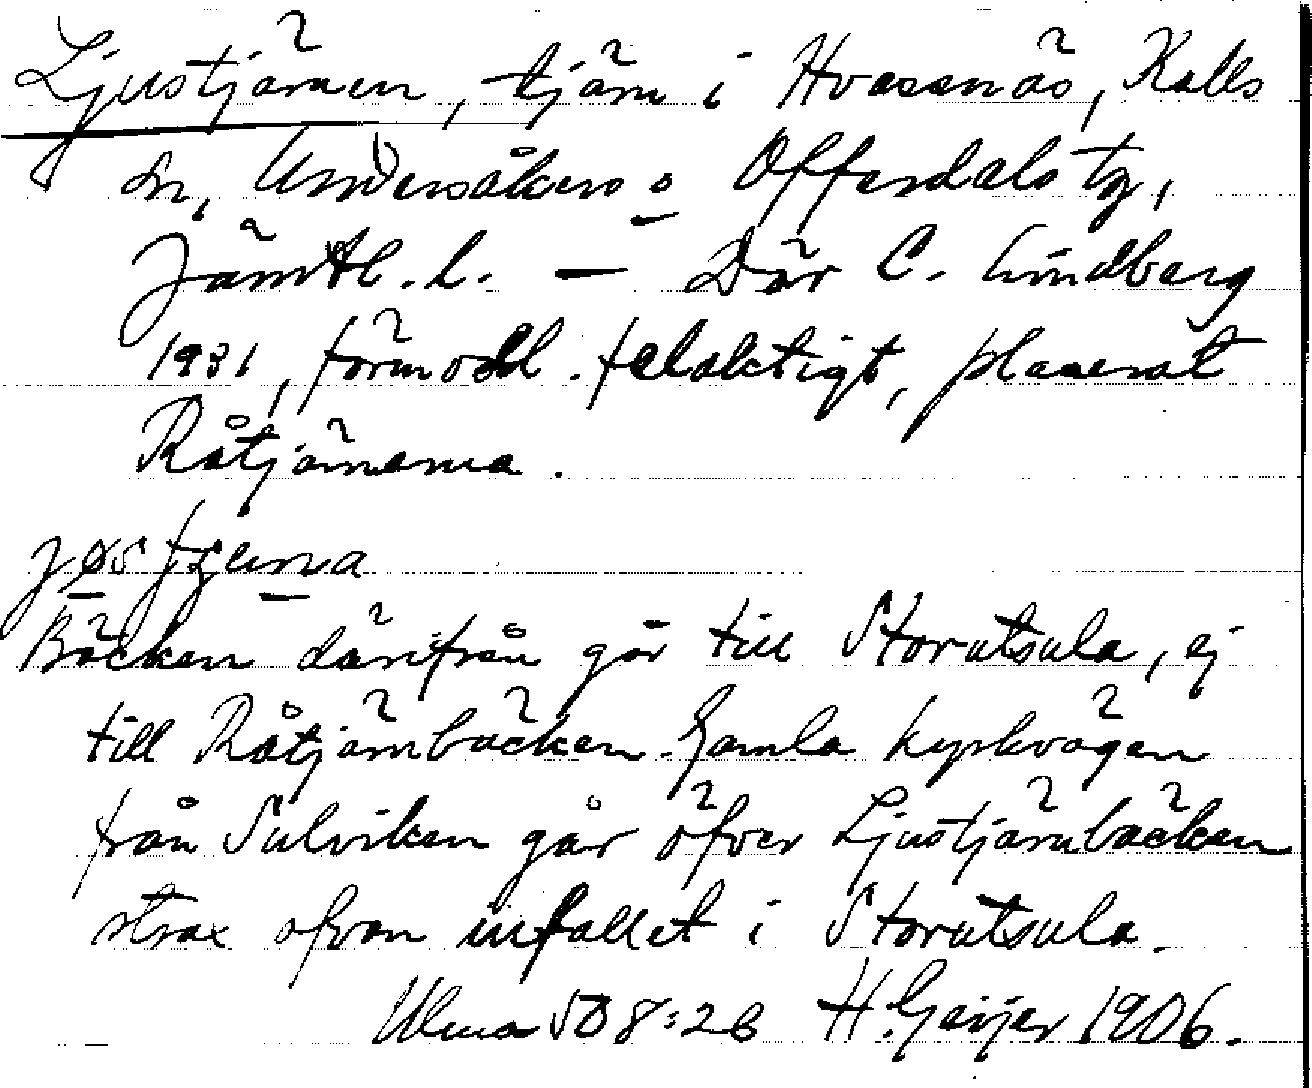 Ljustjärnen, tjärn i Hvassnäs, Kalls
sn, Undersåkers o Offerdals tg,
Jämtl. l. — Där C. Lindberg
1931, förmodl. felaktigt, placerat
Råtjärnarna.
Bäcken därifrån går till Storutsula, ej
till Råtjärnbäcken. Gamla kyrkvägen
från Sulviken går öfver Ljustjärnbäcken
strax ofvan infallet i Storutsula.
Ulma 508:2b H. Geijer 1906.